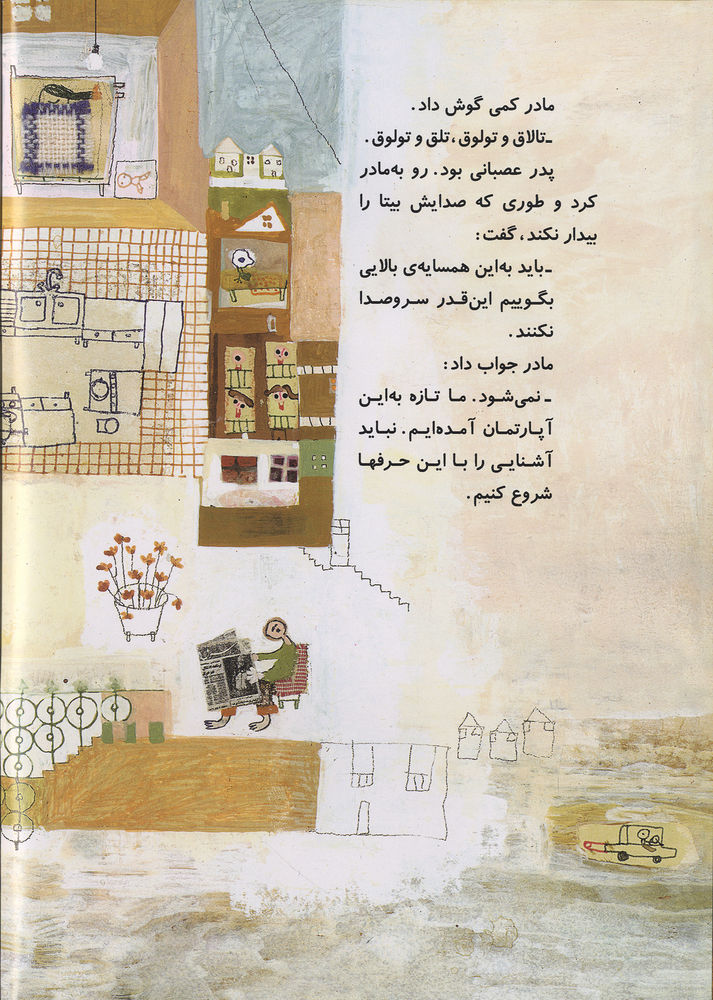 مادر کمی گوش داد.
ـ تالاق و تولوق، تلق و تولوق.
پدر عصبانی بود. رو به‌مادر
کرد و طوری که صدایش بیتا را
بیدار نکند، گفت:
ـ باید به‌این همسایه‌ی بالایی
بگوییم این‌قدر سروصدا
نکنند.
مادر جواب داد:
ـ نمی‌شود. ما تازه به‌این
آپارتمان آمده‌ایم. نباید
آشنایی را با این حرفها
شروع کنیم.